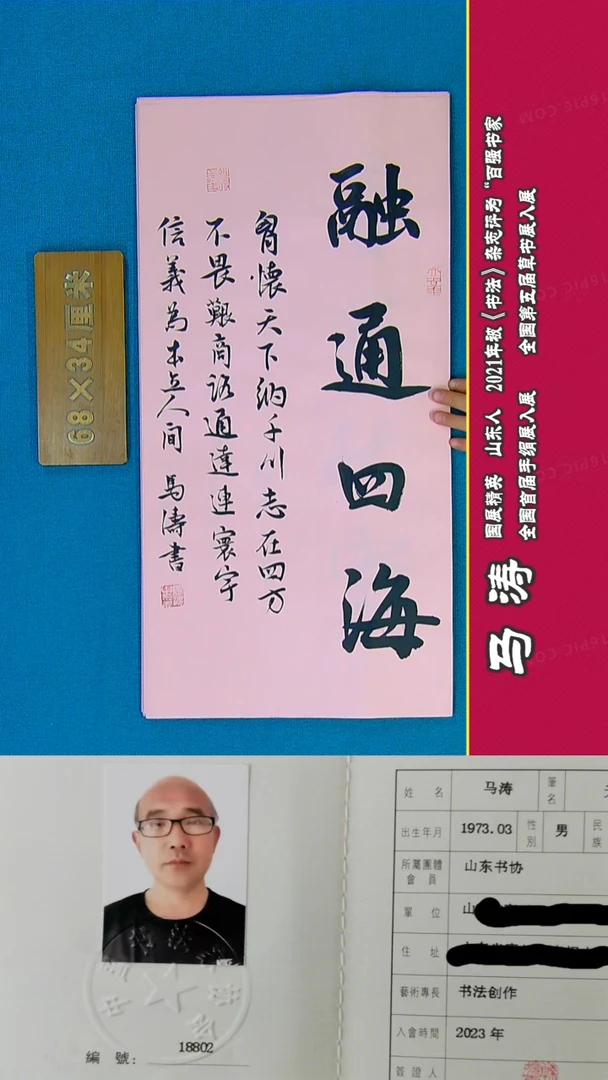 融通四海
胷懷天下納千川志在四方
不畏艱商路通達連寰宇
信義為本立人間 馬濤書
68×34厘米
国展精英 山东人 2021年被《书法》杂志评为“百强书家
全国首届手绢展入展 全国第五届草书展入展
马涛
編 號: 18802
姓 名 马涛 筆名
出生年月 1973.03 性別 男 民族
所屬團體會員 山东书协
單 位 山
住 址
藝術專長 书法创作
入會時間 2023 年
簽證人